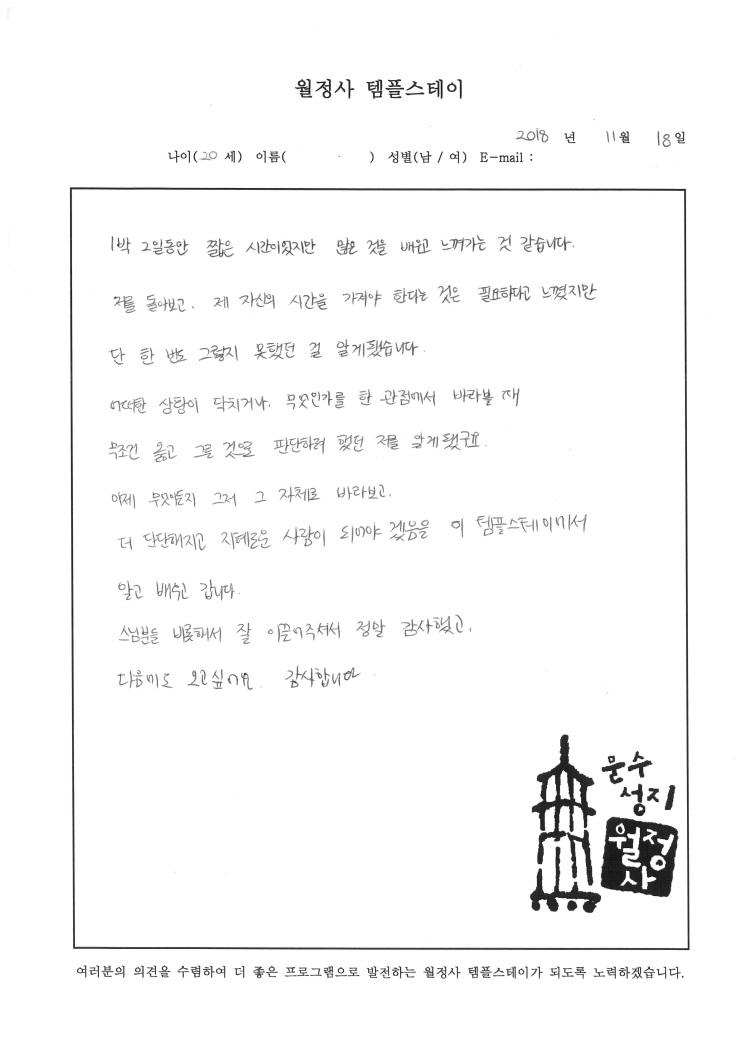 월정사 템플스테이
2018 년 11월 18일
나이(20 세) 이름( ) 성별(남 / 여) E-mail :
1박 2일동안 짧은 시간이었지만 많은 것을 배우고 느껴가는 것 같습니다.
저를 돌아보고, 제 자신의 시간을 가져야 한다는 것은 필요하다고 느꼈지만
단 한 번도 그렇지 못했던 걸 알게됐습니다.
어떠한 상황이 닥치거나, 무엇인가를 한 관점에서 바라볼 때
무조건 옳고 그를 것으로 판단하려 했던 저를 알게됐구요.
이제 무엇이든지 그저 그 자체로 바라보고,
더 단단해지고 지혜로운 사람이 되어야 겠음을 이 템플스테이에서
알고 배우고 갑니다.
스님분들 비롯해서 잘 이끌어주셔서 정말 감사했고,
다음에도 오고싶어요. 감사합니다
문수
성지
월정
사
여러분의 의견을 수렴하여 더 좋은 프로그램으로 발전하는 월정사 템플스테이가 되도록 노력하겠습니다.